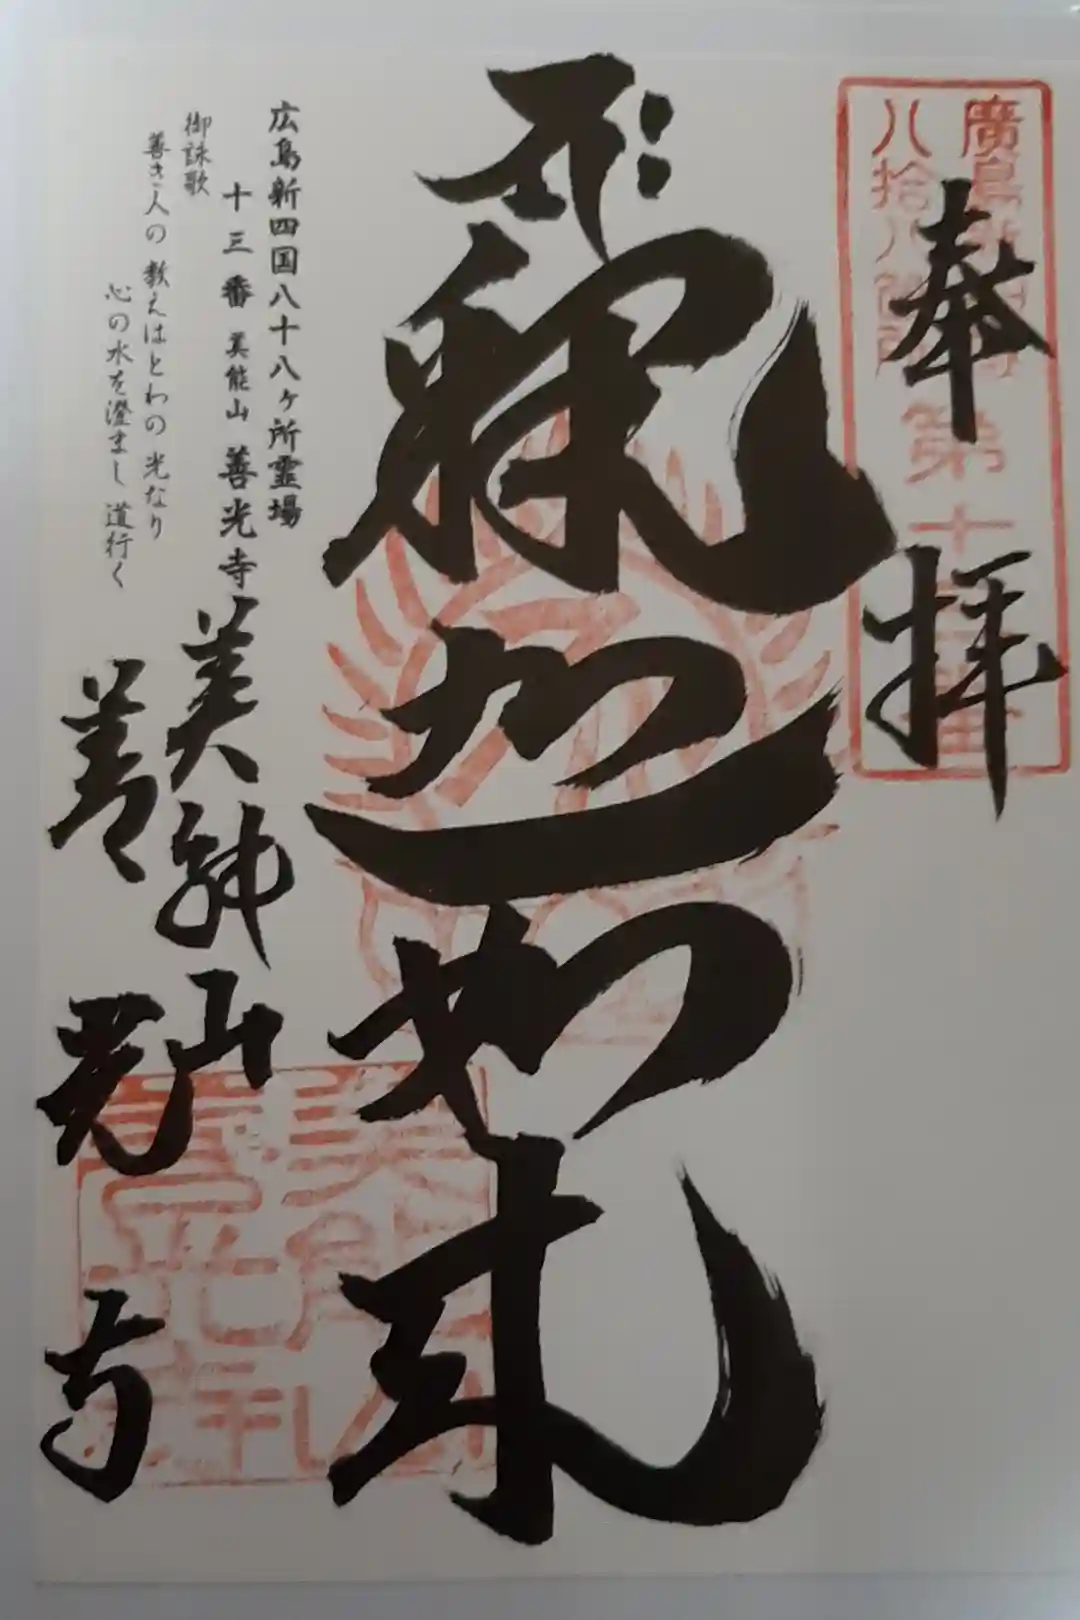 奉拝
廣島新四国八拾八ヶ所第十三番
釈迦如来
広島新四国八十八ヶ所霊場
十三番 美能山 善光寺
御詠歌
善き人の 教えはとわの 光なり
心の水を 澄まし 道行く
美能山
善光寺
美能山善光寺